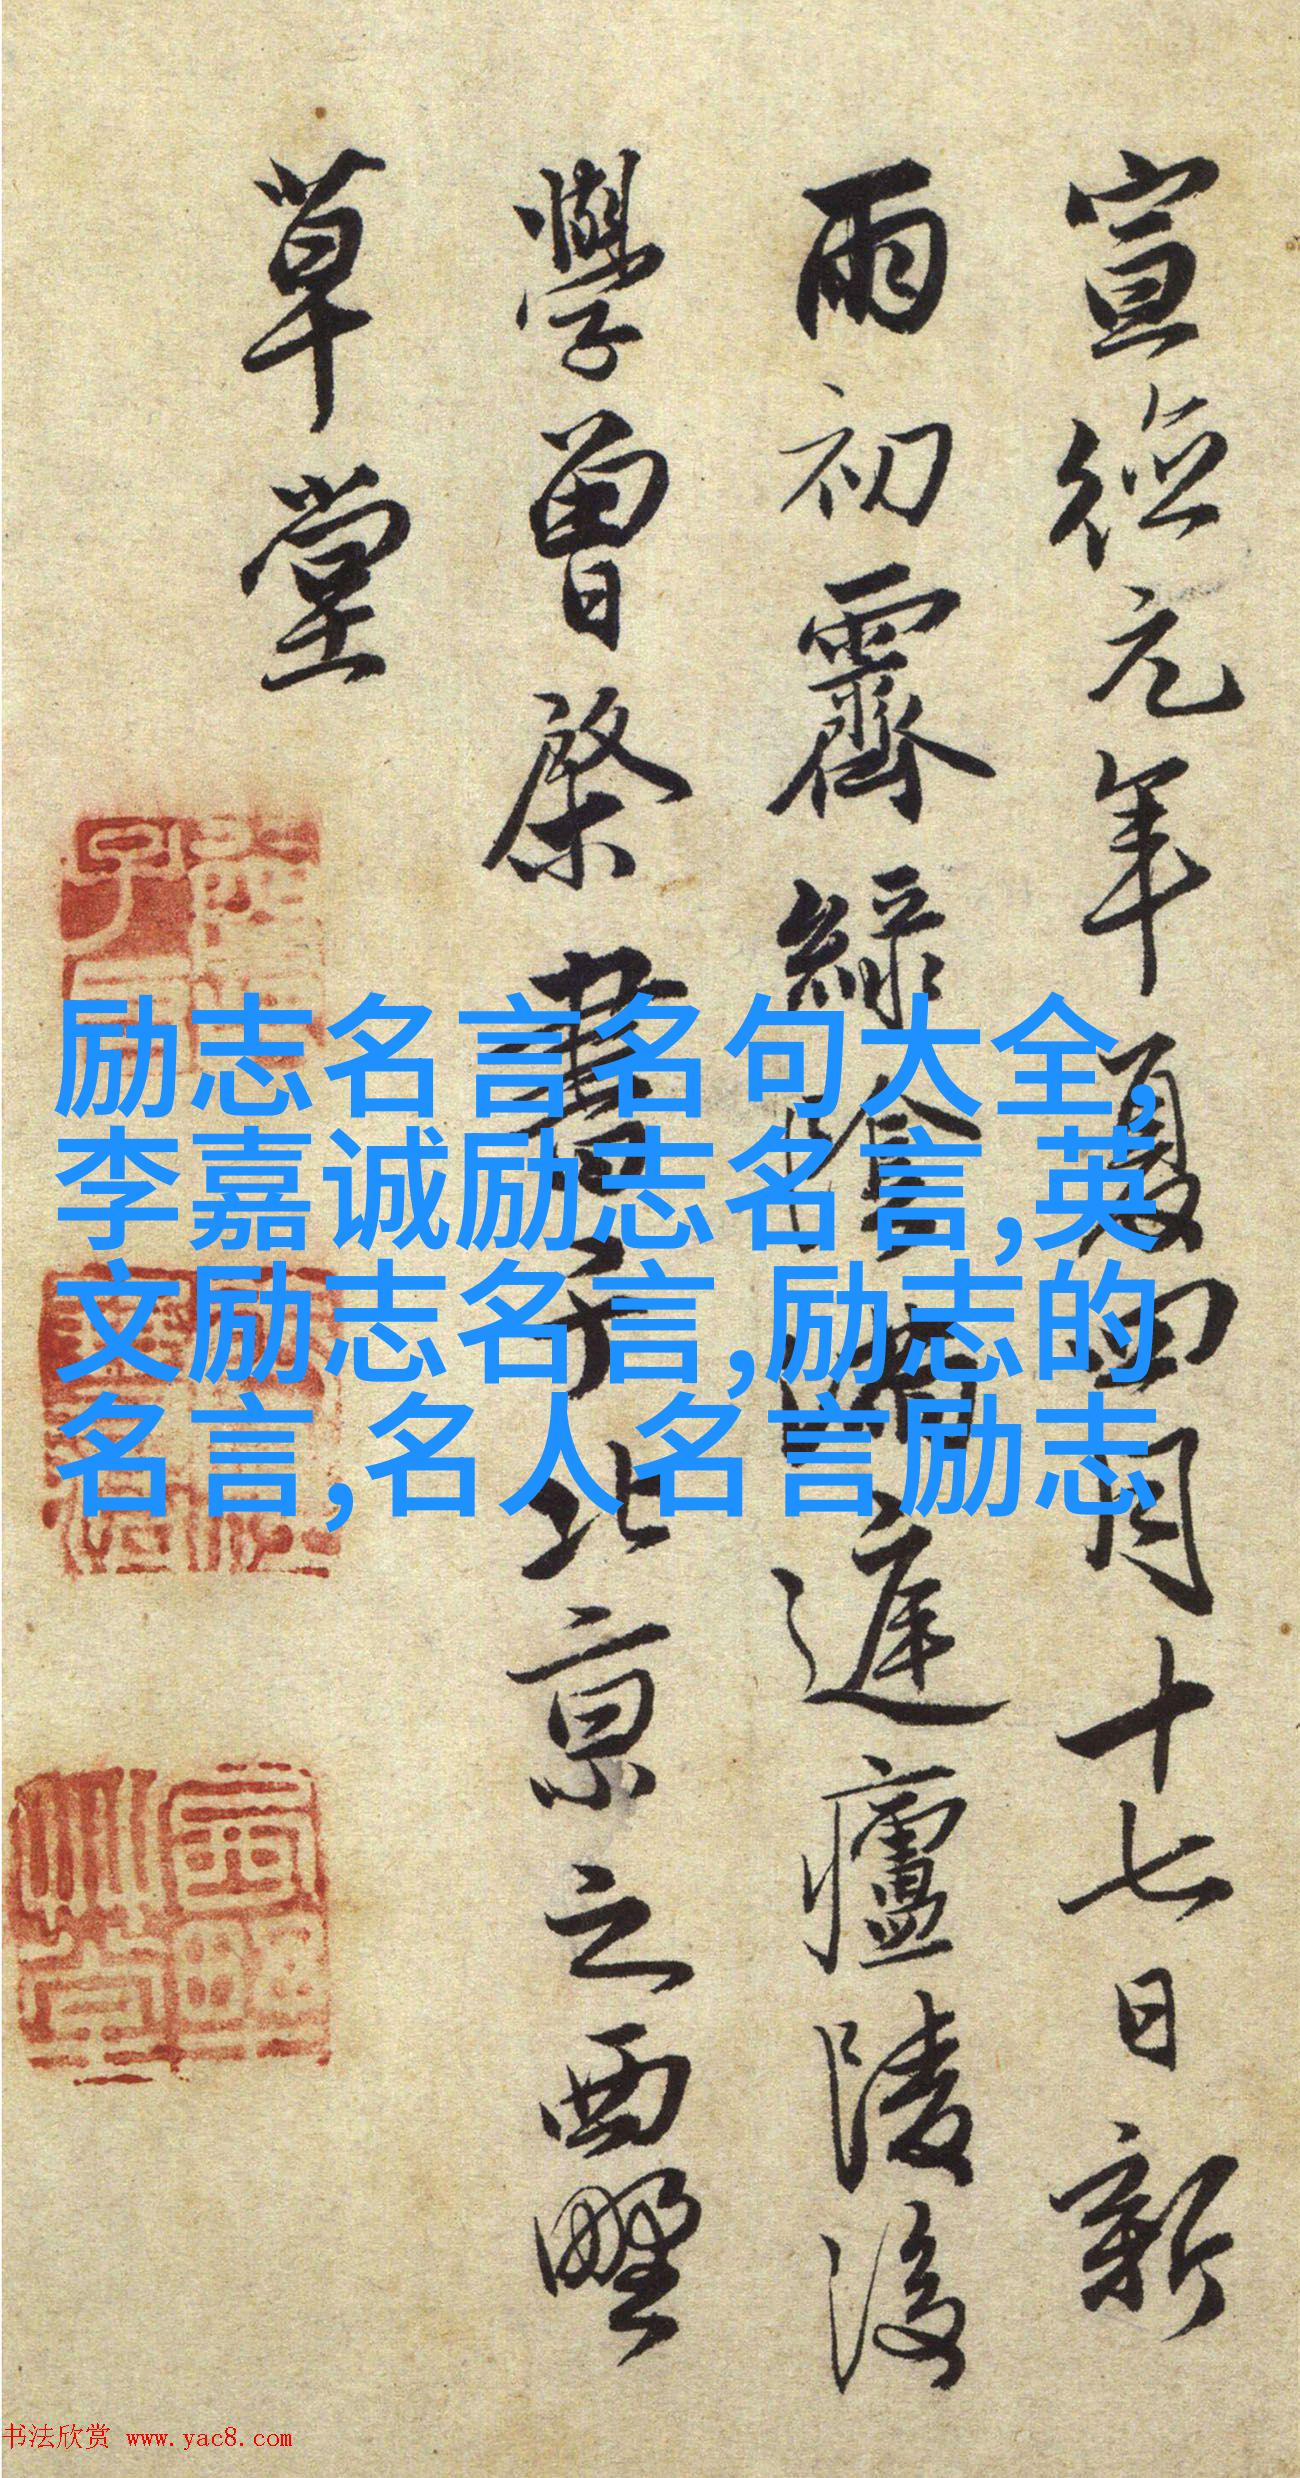 宣德元年夏四月十七日新
雨初霽綠陰滿庭廬陵後
學曾棨書于北京之西墅
草堂
励志名言名句大全,
李嘉诚励志名言,英
文励志名言,励志的
名言,名人名言励志
书法欣赏 www.yac8.com